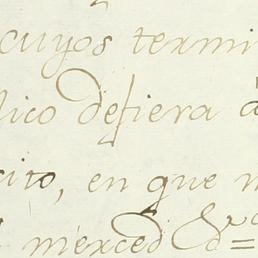 cuyos termi
lico defiera a
cito, en que
merced &a =